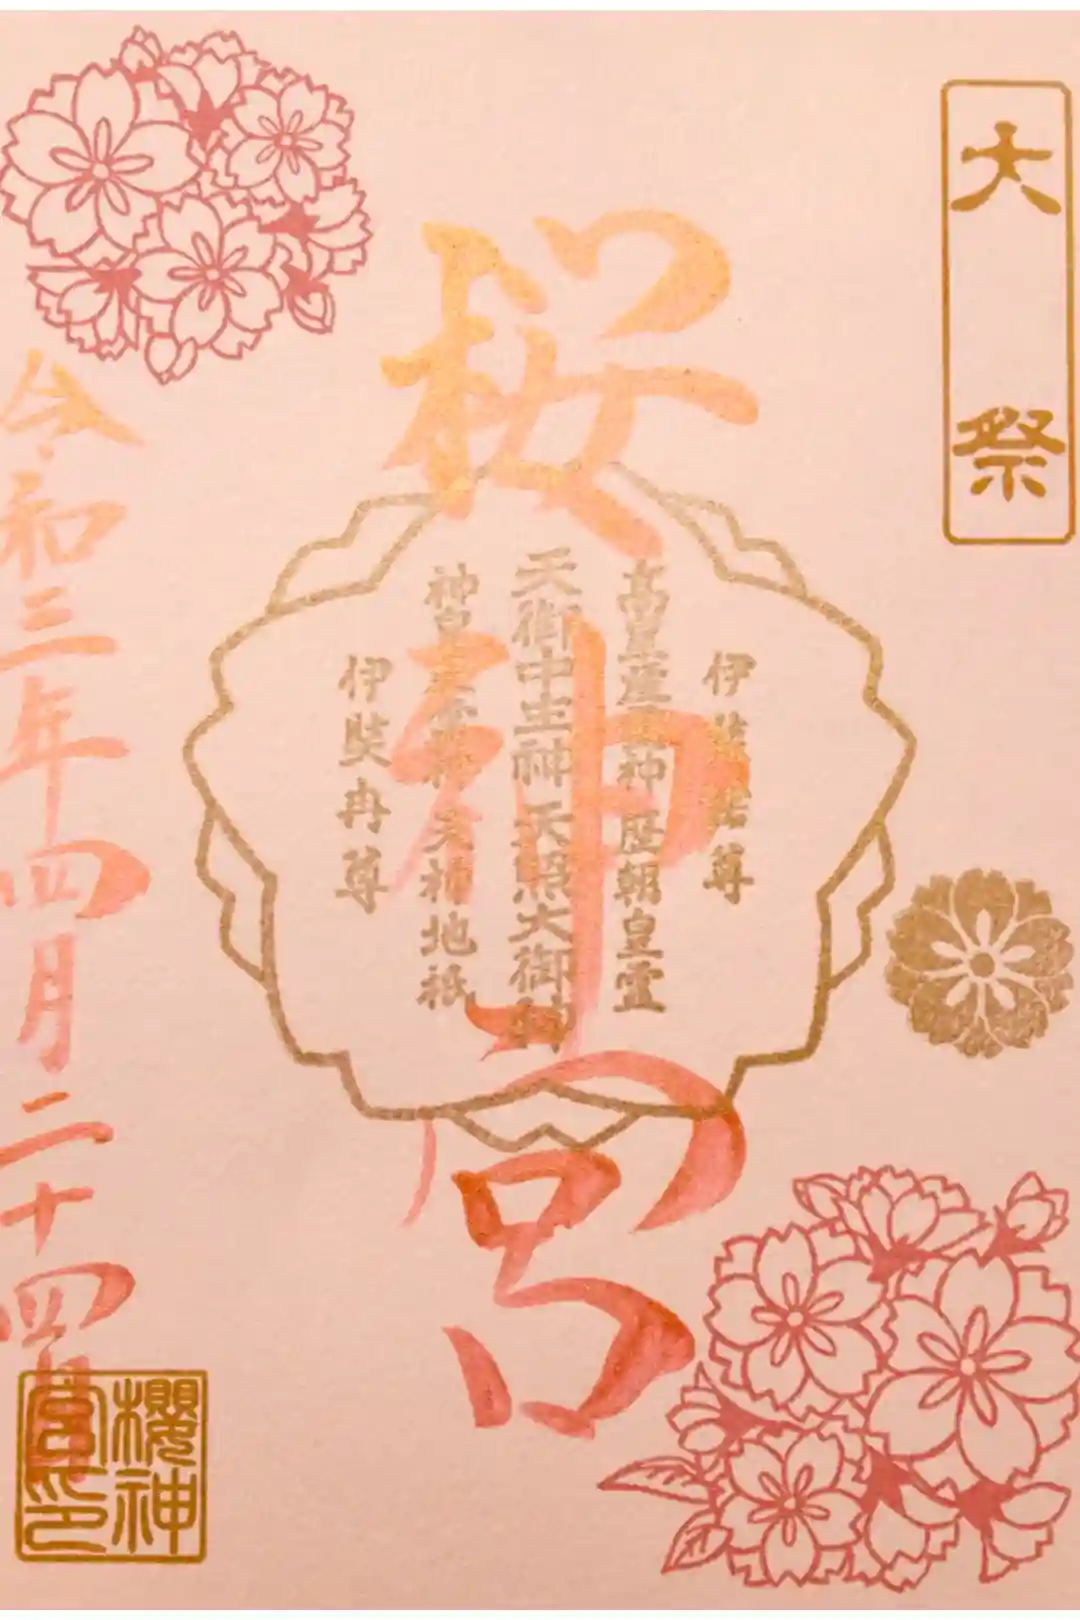 大祭
桜神宮
伊弉諾尊
高皇産霊神 歴朝皇霊
天御中主神 天照大御神
神皇産霊神 天神地祇
伊弉冉尊
令和三年四月二十四日
櫻神宮印